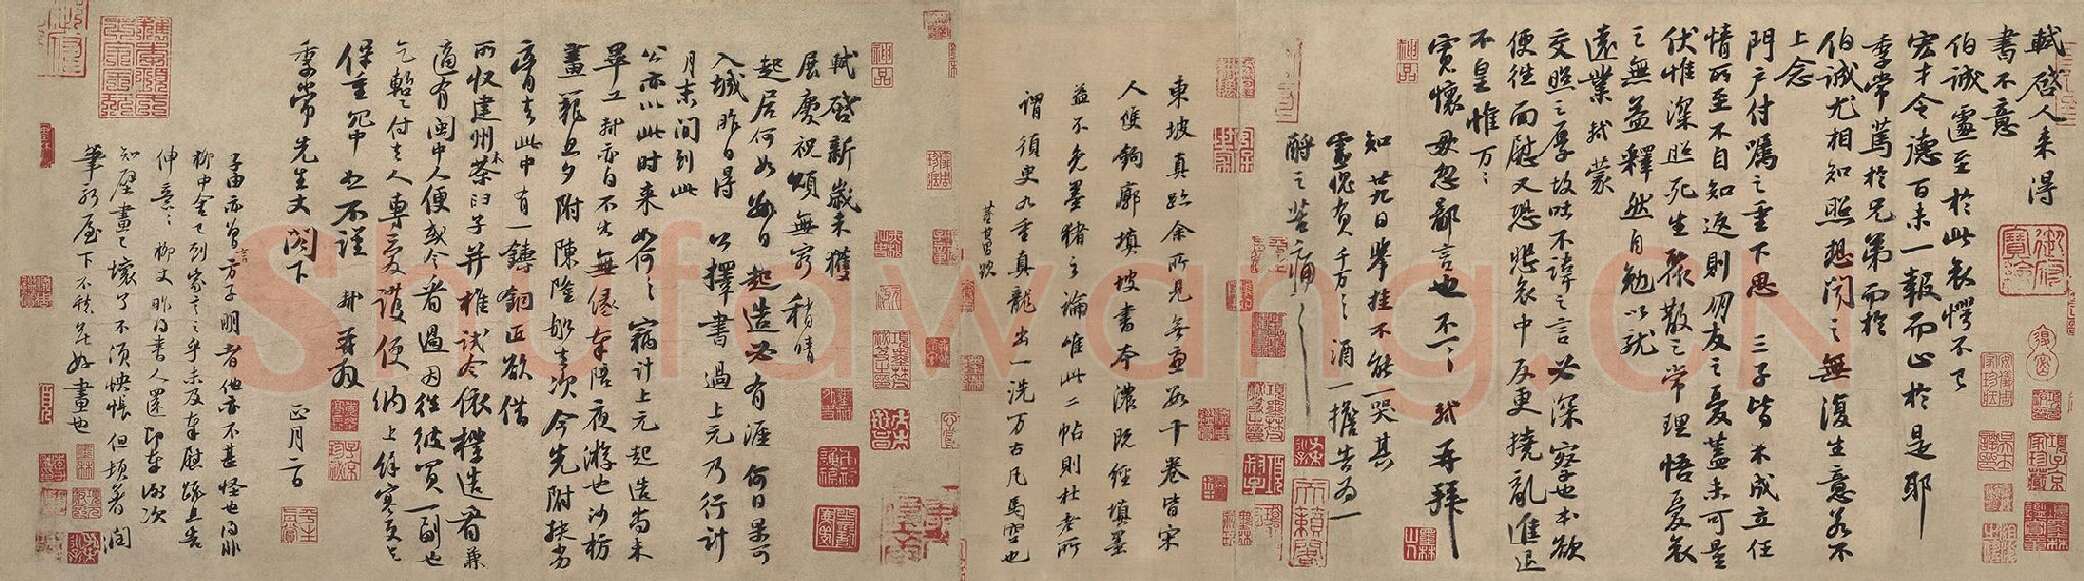 軾啓人来得
書不意
伯誠遽至於此哀愕不已
宏才令德百未一報而止於是耶
季常篤於兄弟而於
伯誠尤相知照想聞之無復生意若不
上念
門戶付囑之重下思三子皆未成立任
情所至不自知返則朋友之憂蓋未可量
伏惟深照死生聚散之常理悟憂哀
之無益釋然自勉以就
遠業軾蒙
交照之厚故吐不諱之言必深察也本欲
便往面慰又恐悲哀中反更撓亂進退
不皇惟萬萬
寬懷毋忽鄙言也不一一軾再拜
知廿九日舉掛不能一哭其
靈愧負千万千万酒一擔告為一
酹之苦痛苦痛
東坡真跡余所見無慮數十卷皆宋
人雙鉤廓填坡書本濃既經填墨
益不免墨豬之論唯此二帖則杜老所
謂須臾九重真龍出一洗万古凡馬空也
董其昌跋
軾啓新歲未獲
展慶祝頌無窮稍晴
起居何如數日起造必有涯何日果可
入城昨日得公擇書過上元乃行計
月末間到此
公亦以此時来如何如何竊計上元起造尚未
畢工軾亦自不出無緣奉陪夜游也沙枋
畫籠旦夕附陳隆船去次今先附扶劣
膏去此中有一鑄銅匠欲借
所收建州木茶臼子并椎試令依樣造看兼
適有閩中人便或令看過因往彼買一副也
乞暫付去人專愛護便納上餘寒更乞
保重冗中恕不謹軾再拜
季常先生丈閣下
正月二日
子由亦曾言方子明者他亦不甚怪也得非
柳中舍已到家言之乎未及奉慰疏且告
伸意伸意柳丈昨得書人還即奉謝次
知壁畫已壞了不須怏悵但頓著潤
筆新屋下不愁無好畫也
Shufawang.CN